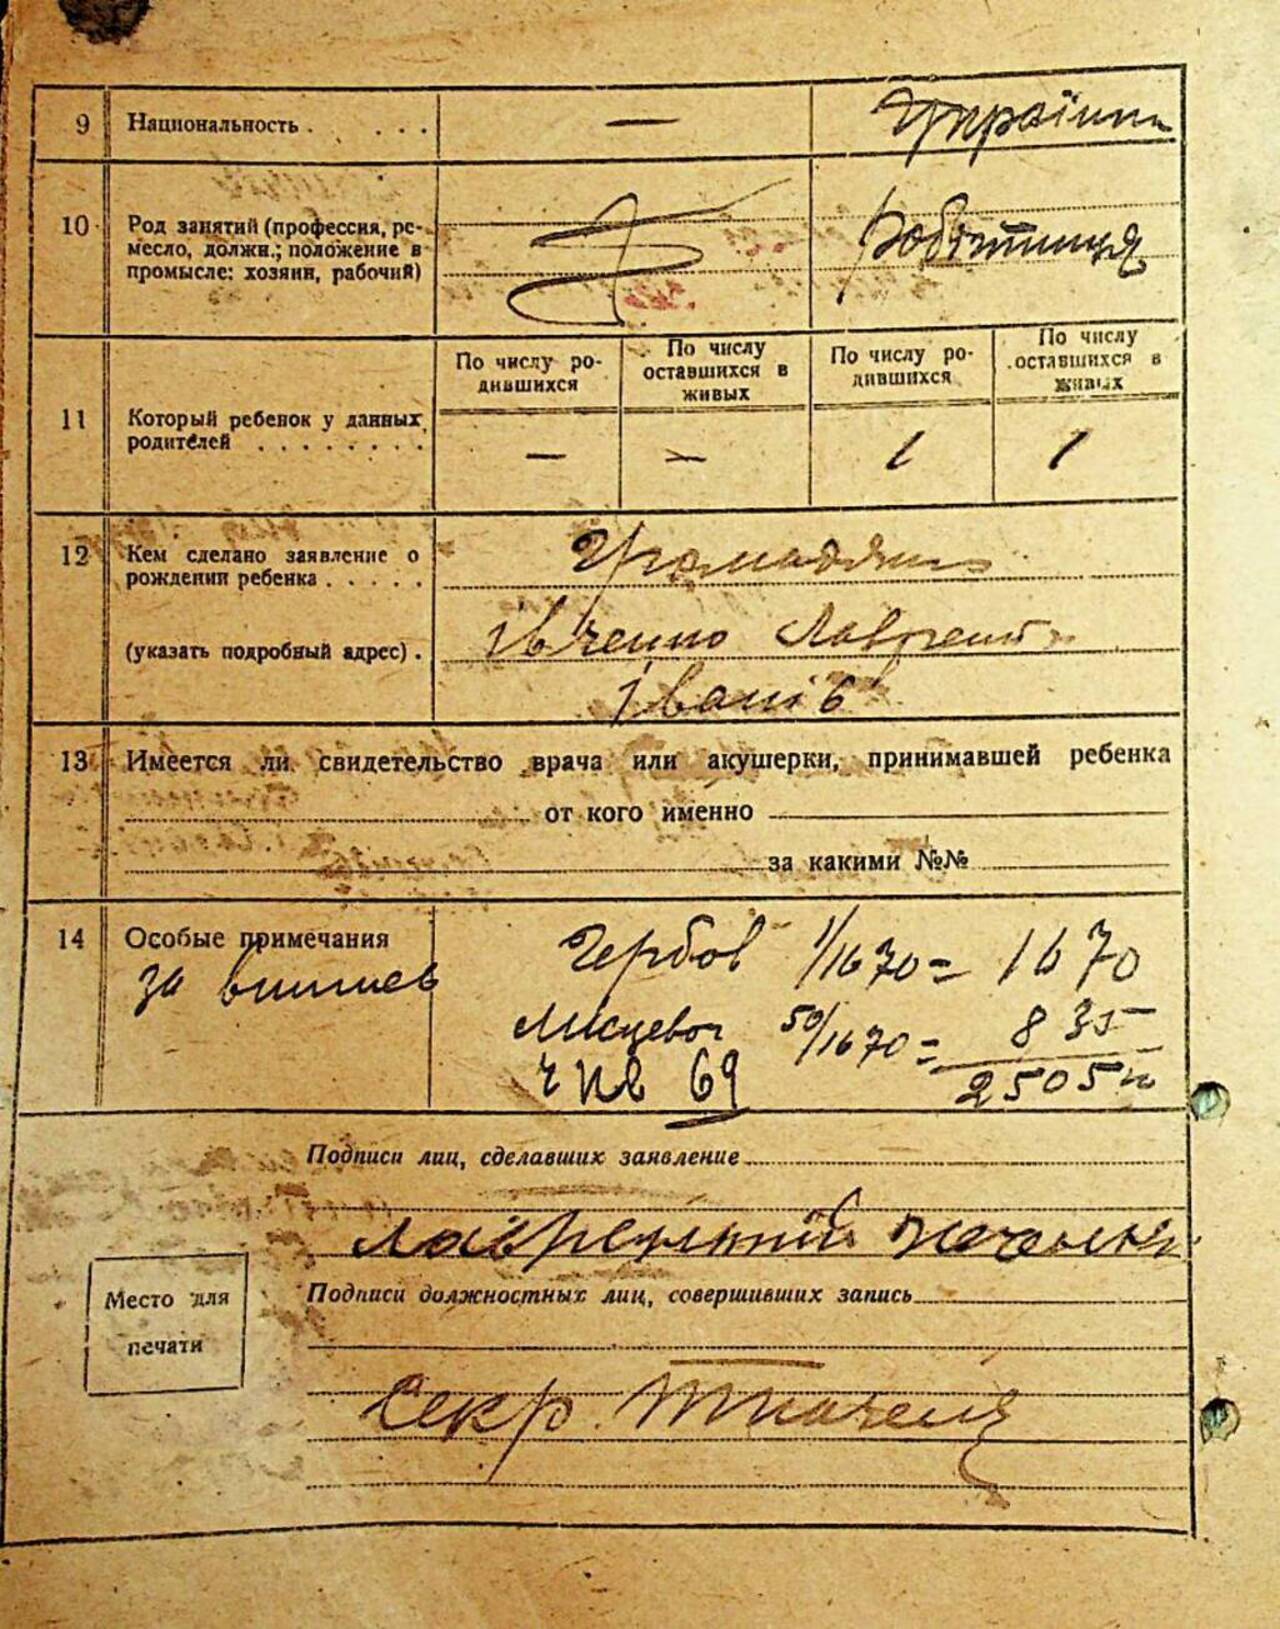 9 Национальность . . . . — Українк
10 Род занятий (профессия, ре-
месло, должн.; положение в
промысле: хозяин, рабочий)
Робітниця
По числу ро-
дившихся
По числу
оставшихся в
живых
По числу ро-
дившихся
По числу
оставшихся в
живых
11 Который ребенок у данных
родителей . . . . . . . . — — 1 1
12 Кем сделано заявление о
рождении ребенка . . . . .
Громадян
(указать подробный адрес) .
Івченко Лаврент
Іванів
13 Имеется ли свидетельство врача или акушерки, принимавшей ребенка
от кого именно
за какими №№
14 Особые примечания
за
Гербов 1/1670 = 1670
Місцевої 50/1670 = 835
2505
69
Подписи лиц, сделавших заявление
Подписи должностных лиц, совершивших запись
Место для
печати
Секр.